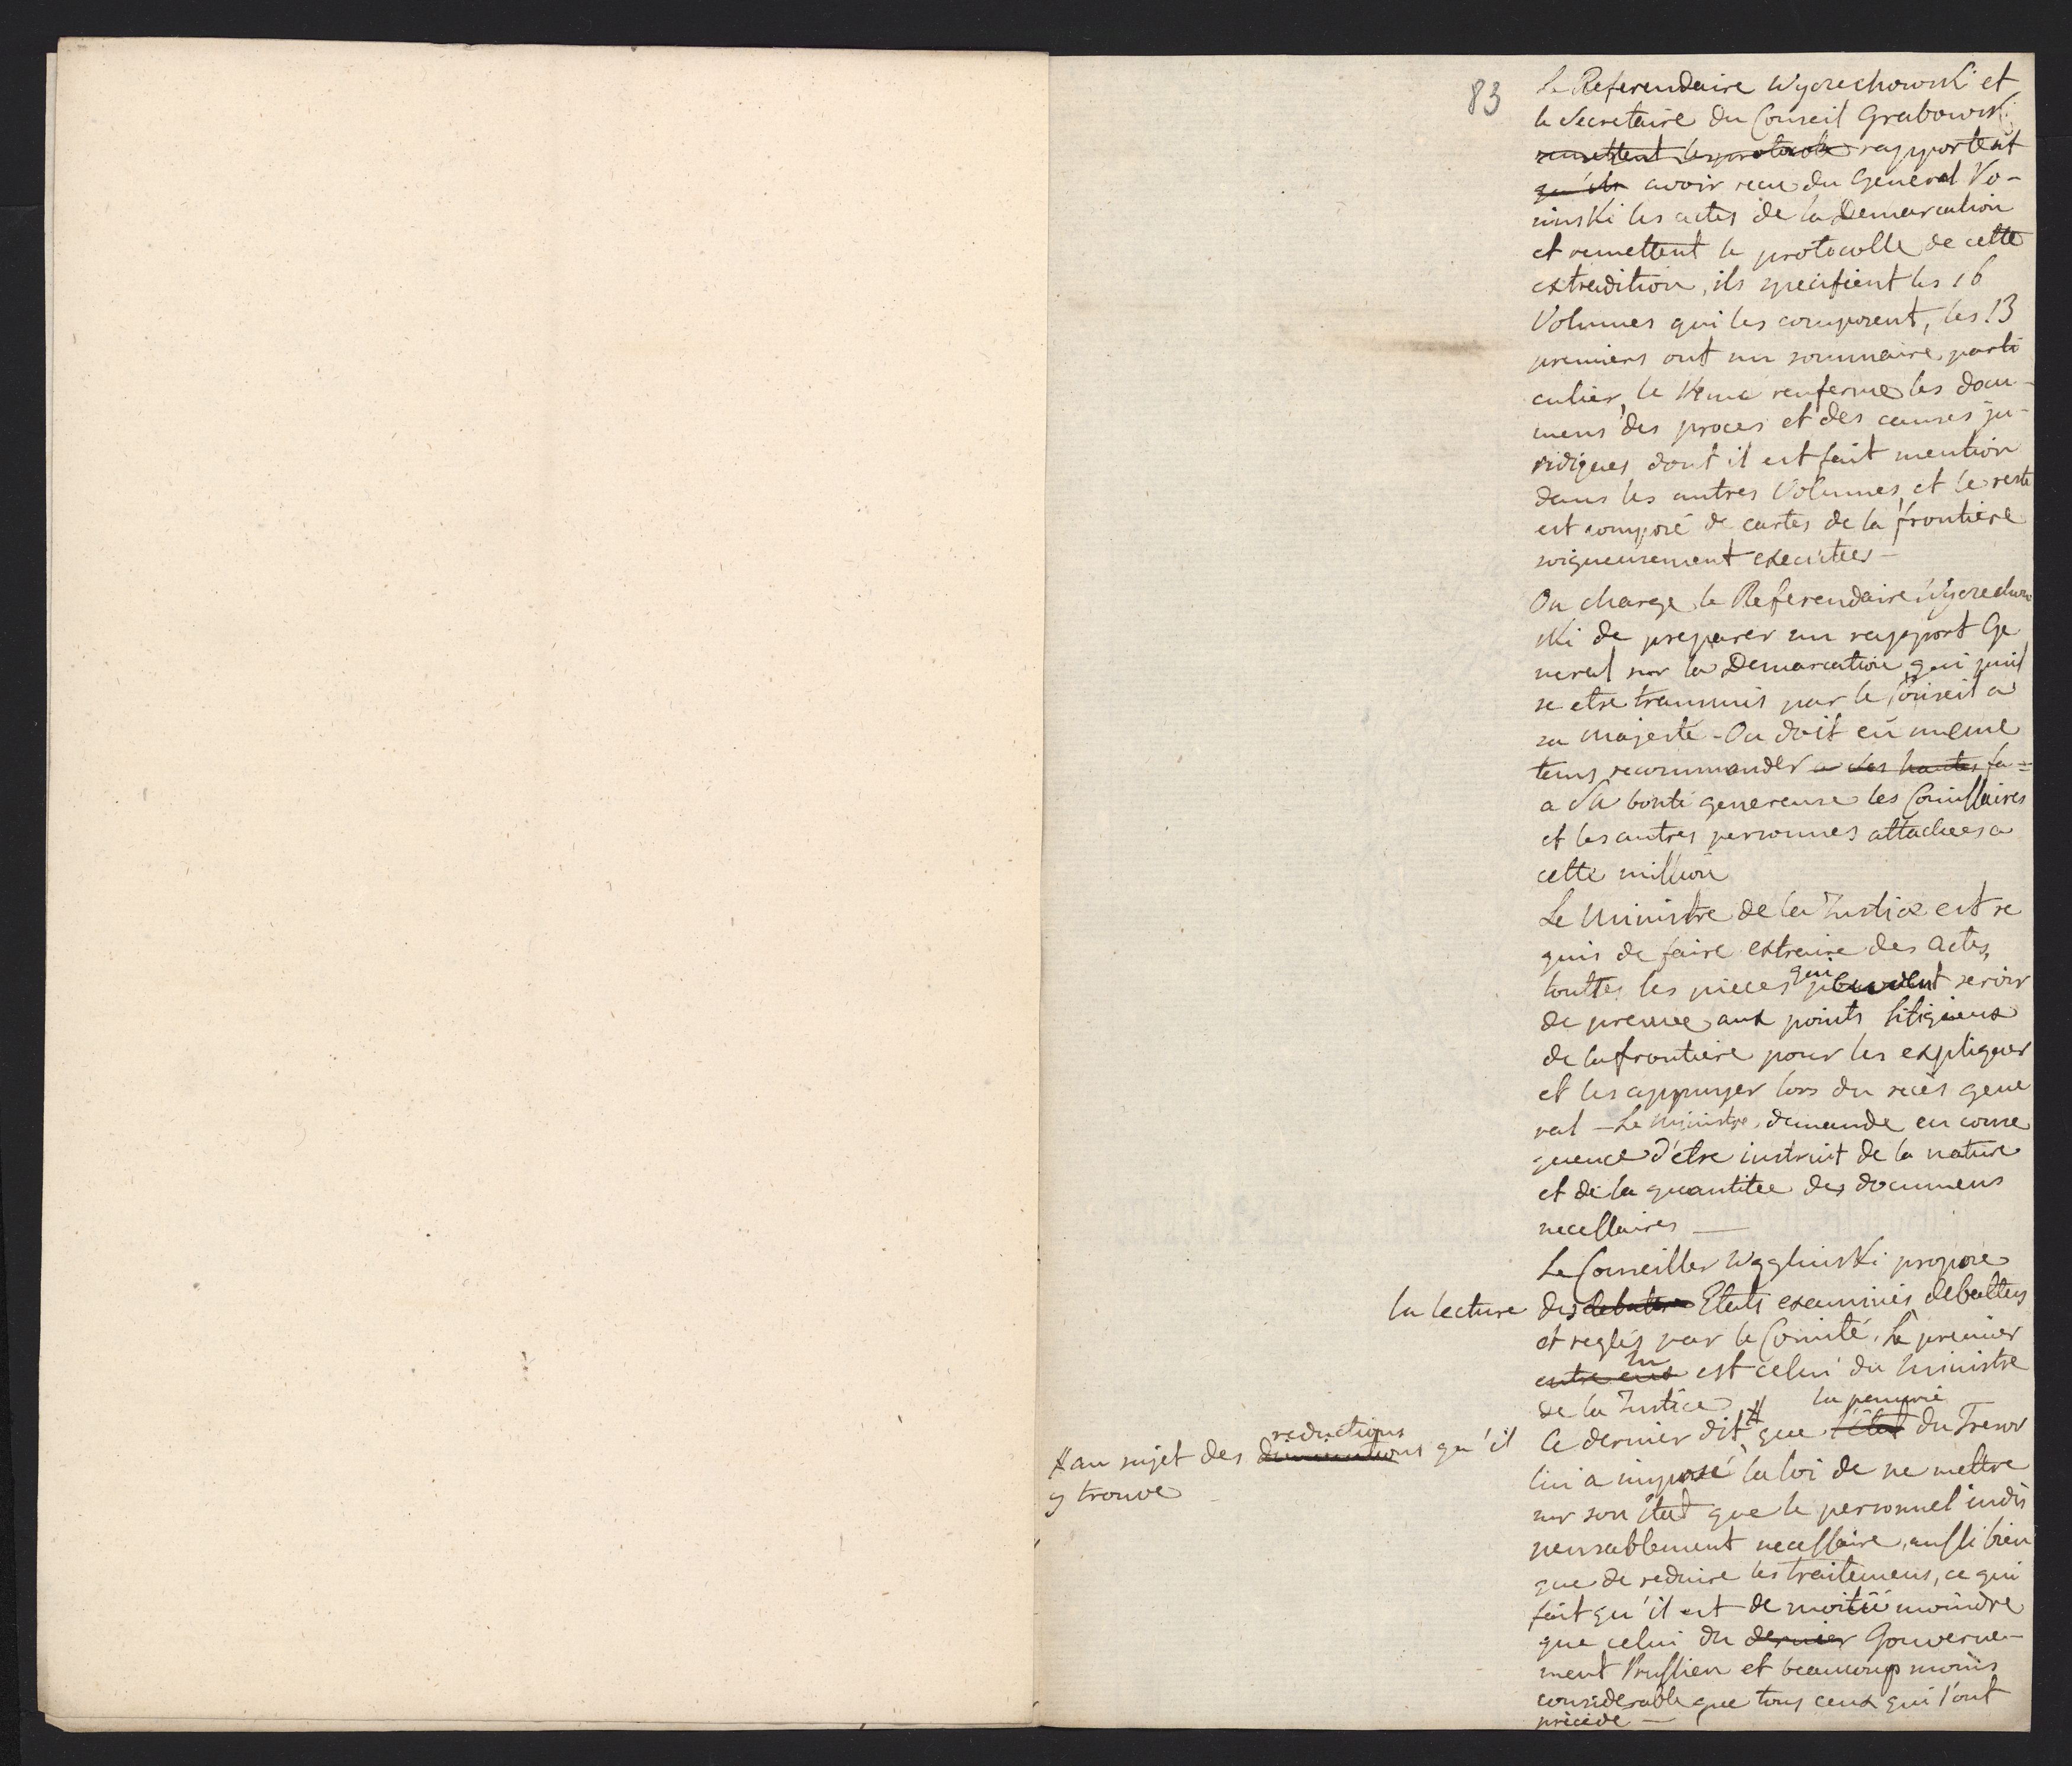 83
Le Referendaire Wyczechowski et
le Secretaire du Conseil Grabowski
remettent les protocole rapportent
qu'ils avoir recu du General Vo-
ninski les actes de la Demarcation
et remettent le protocolle de cette
extradition, ils specifient les 16
Volumes qui les composent, les 13
premiers ont un sommaire parti
culier, le 14eme renferme les docu-
mens des proces et des causes ju-
ridiques, dont il est fait mention
dans les autres Volumes, et le reste
est composé de cartes de la frontiere
soigneusement executées —
On charge le Referendaire Wyczechow
ski de preparer un rapport Ge
neral sur la Demarcation qui puis
se etre transmis par le Conseil a
sa Majesté - On doit en meme
tems recommander a Ses hautes fa=
a Sa bonté genereuse les Comissaires
et les autres personnes attachées a
cette mission
Le Ministre de la Justice est re
quis de faire extraire des actes,
touttes les pieces qui peuvent servir
de preuve aux points litigieux
de la frontiere pour les expliquer
et les appuyer lors du recès gene
ral — Le Ministre demande en conse
quence d'être instruit de la nature
et de la quantitée des documens
necessaires —
Le Conseiller Węgliński propose
la lecture des debattre Etats examinés debattus
et reglés par le Comité. Le premier
entre eux lu est celui du Ministre
de la Justice
Ce dernier dit # que l'état la penurie du Tresor
# au sujet des diminutions reductions qu'il
y trouve
lui a imposé la loi de ne mettre
sur son état que le personnel indis
pensablement necessaire, aussi bien
que de reduire les traitemens, ce qui
fait qu'il est de moitié moindre
que celui du dernier Gouverne-
ment Prussien et beaucoup moins
considerable que tous ceux qui l'ont
précedé —